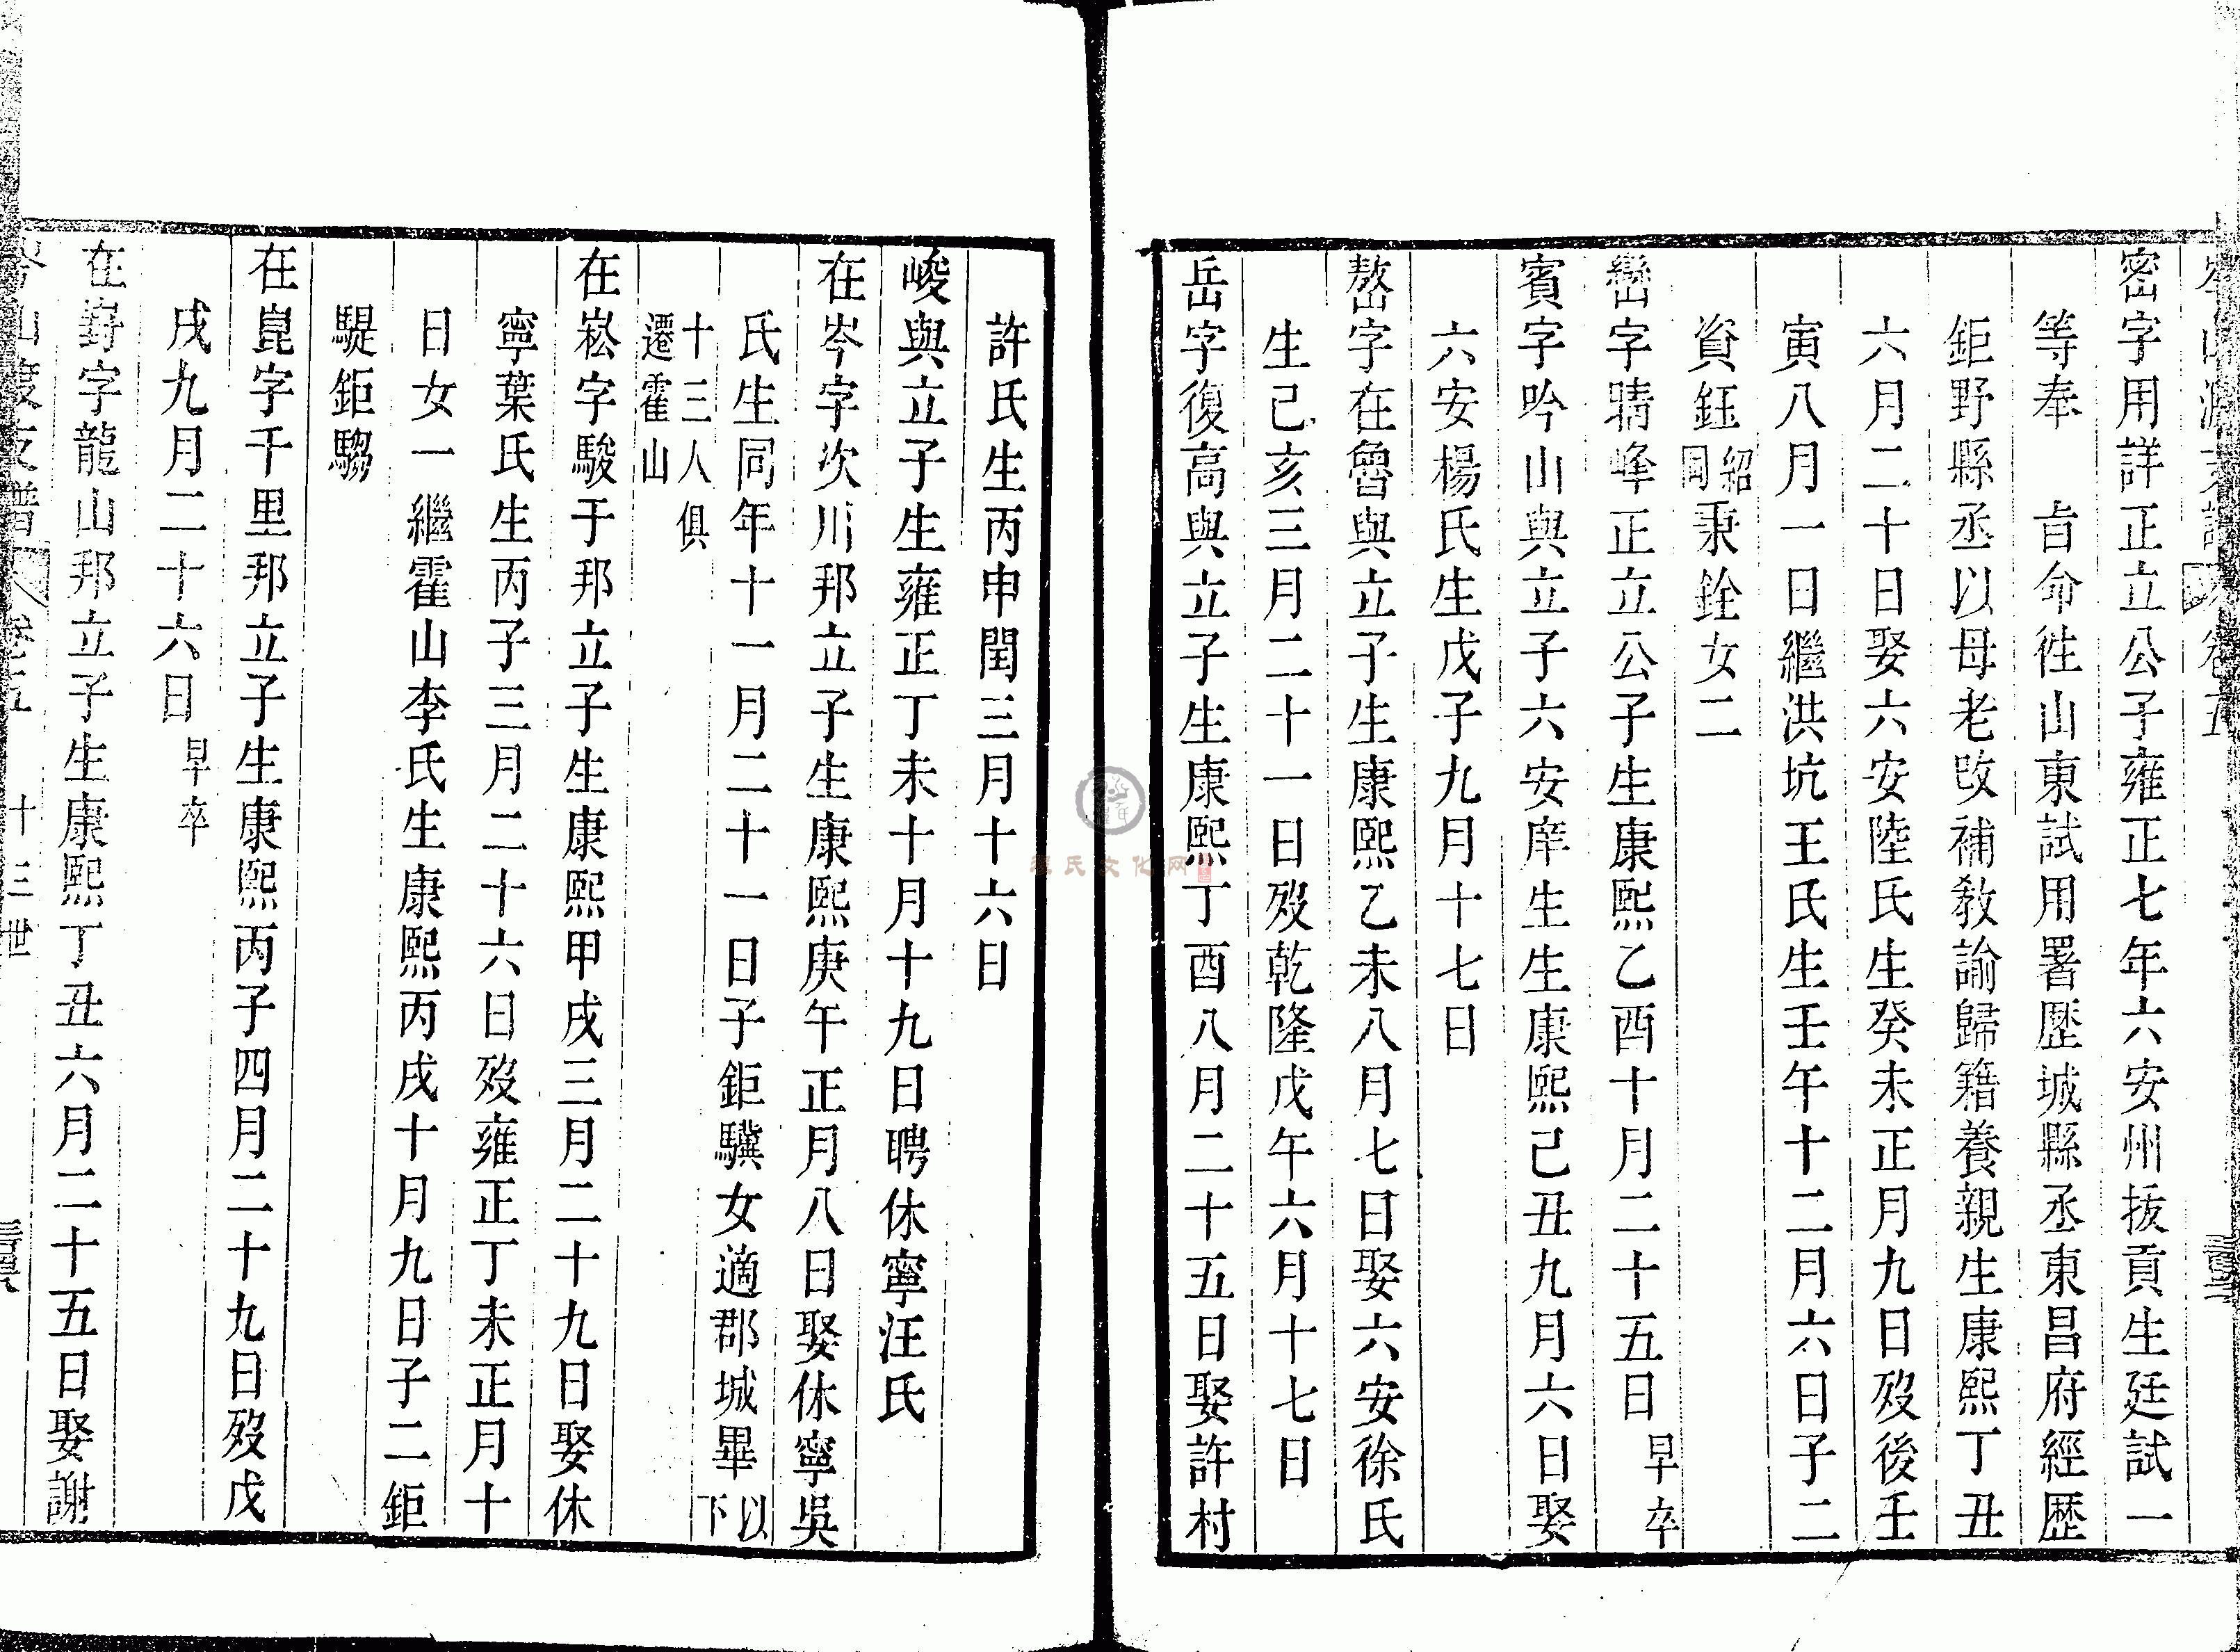 密字用詳正立公子雍正七年六安州拔貢生廷試一
等奉　旨命徃山東試用署歷城縣丞東昌府經歷
鉅野縣丞以母老改補教諭歸籍養親生康熙丁丑
六月二十日娶六安陸氏生癸未正月九日歿後壬
寅八月一日繼洪坑王氏生壬午十二月六日子二
資鈺紹岡秉銓女二
巒字晴峰正立公子生康熙乙酉十月二十五日早卒
賓字吟山與立子六安庠生生康熙己丑九月六日娶
六安楊氏生戊子九月十七日
嶅字在魯與立子生康熙乙未八月七日娶六安徐氏
生己亥三月二十一日歿乾隆戊午六月十七日
岳字復高與立子生康熙丁酉八月二十五日娶許村
許氏生丙申閏三月十六日
峻與立子生雍正丁未十月十九日聘休寧汪氏
在岑字次川邦立子生康熙庚午正月八日娶休寧吳
氏生同年十一月二十一日子鉅驥女適郡城畢以下
十三人俱遷霍山
在崧字駿于邦立子生康熙甲戌三月二十九日娶休
寧葉氏生丙子三月二十六日歿雍正丁未正月十
日女一繼霍山李氏生康熙丙戌十月九日子二鉅
騠鉅騶
在崑字千里邦立子生康熙丙子四月二十九日歿戊
戌九月二十六日早卒
在嵜字龍山邦立子生康熙丁丑六月二十五日娶謝
岑山渡支譜　卷之五　十三世
程氏文化网